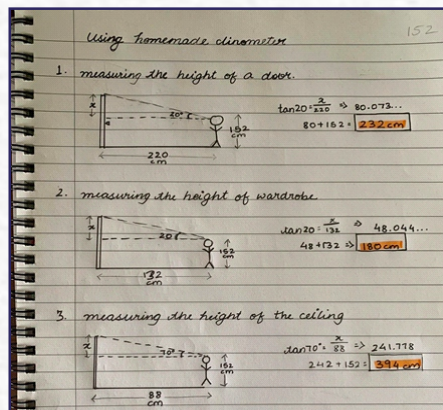 152
Using homemade clinometer
1. measuring the height of a door.
x
20°
152 cm
220 cm
tan20 = x/220 => 80.073...
80+152 = 232cm
2. measuring the height of wardrobe
x
20°
152 cm
132 cm
tan20 = x/132 => 48.044...
48+132 => 180cm
3. measuring the height of the ceiling
x
70°
152 cm
88 cm
tan70° = x/88 => 241.778
242+152 = 394cm